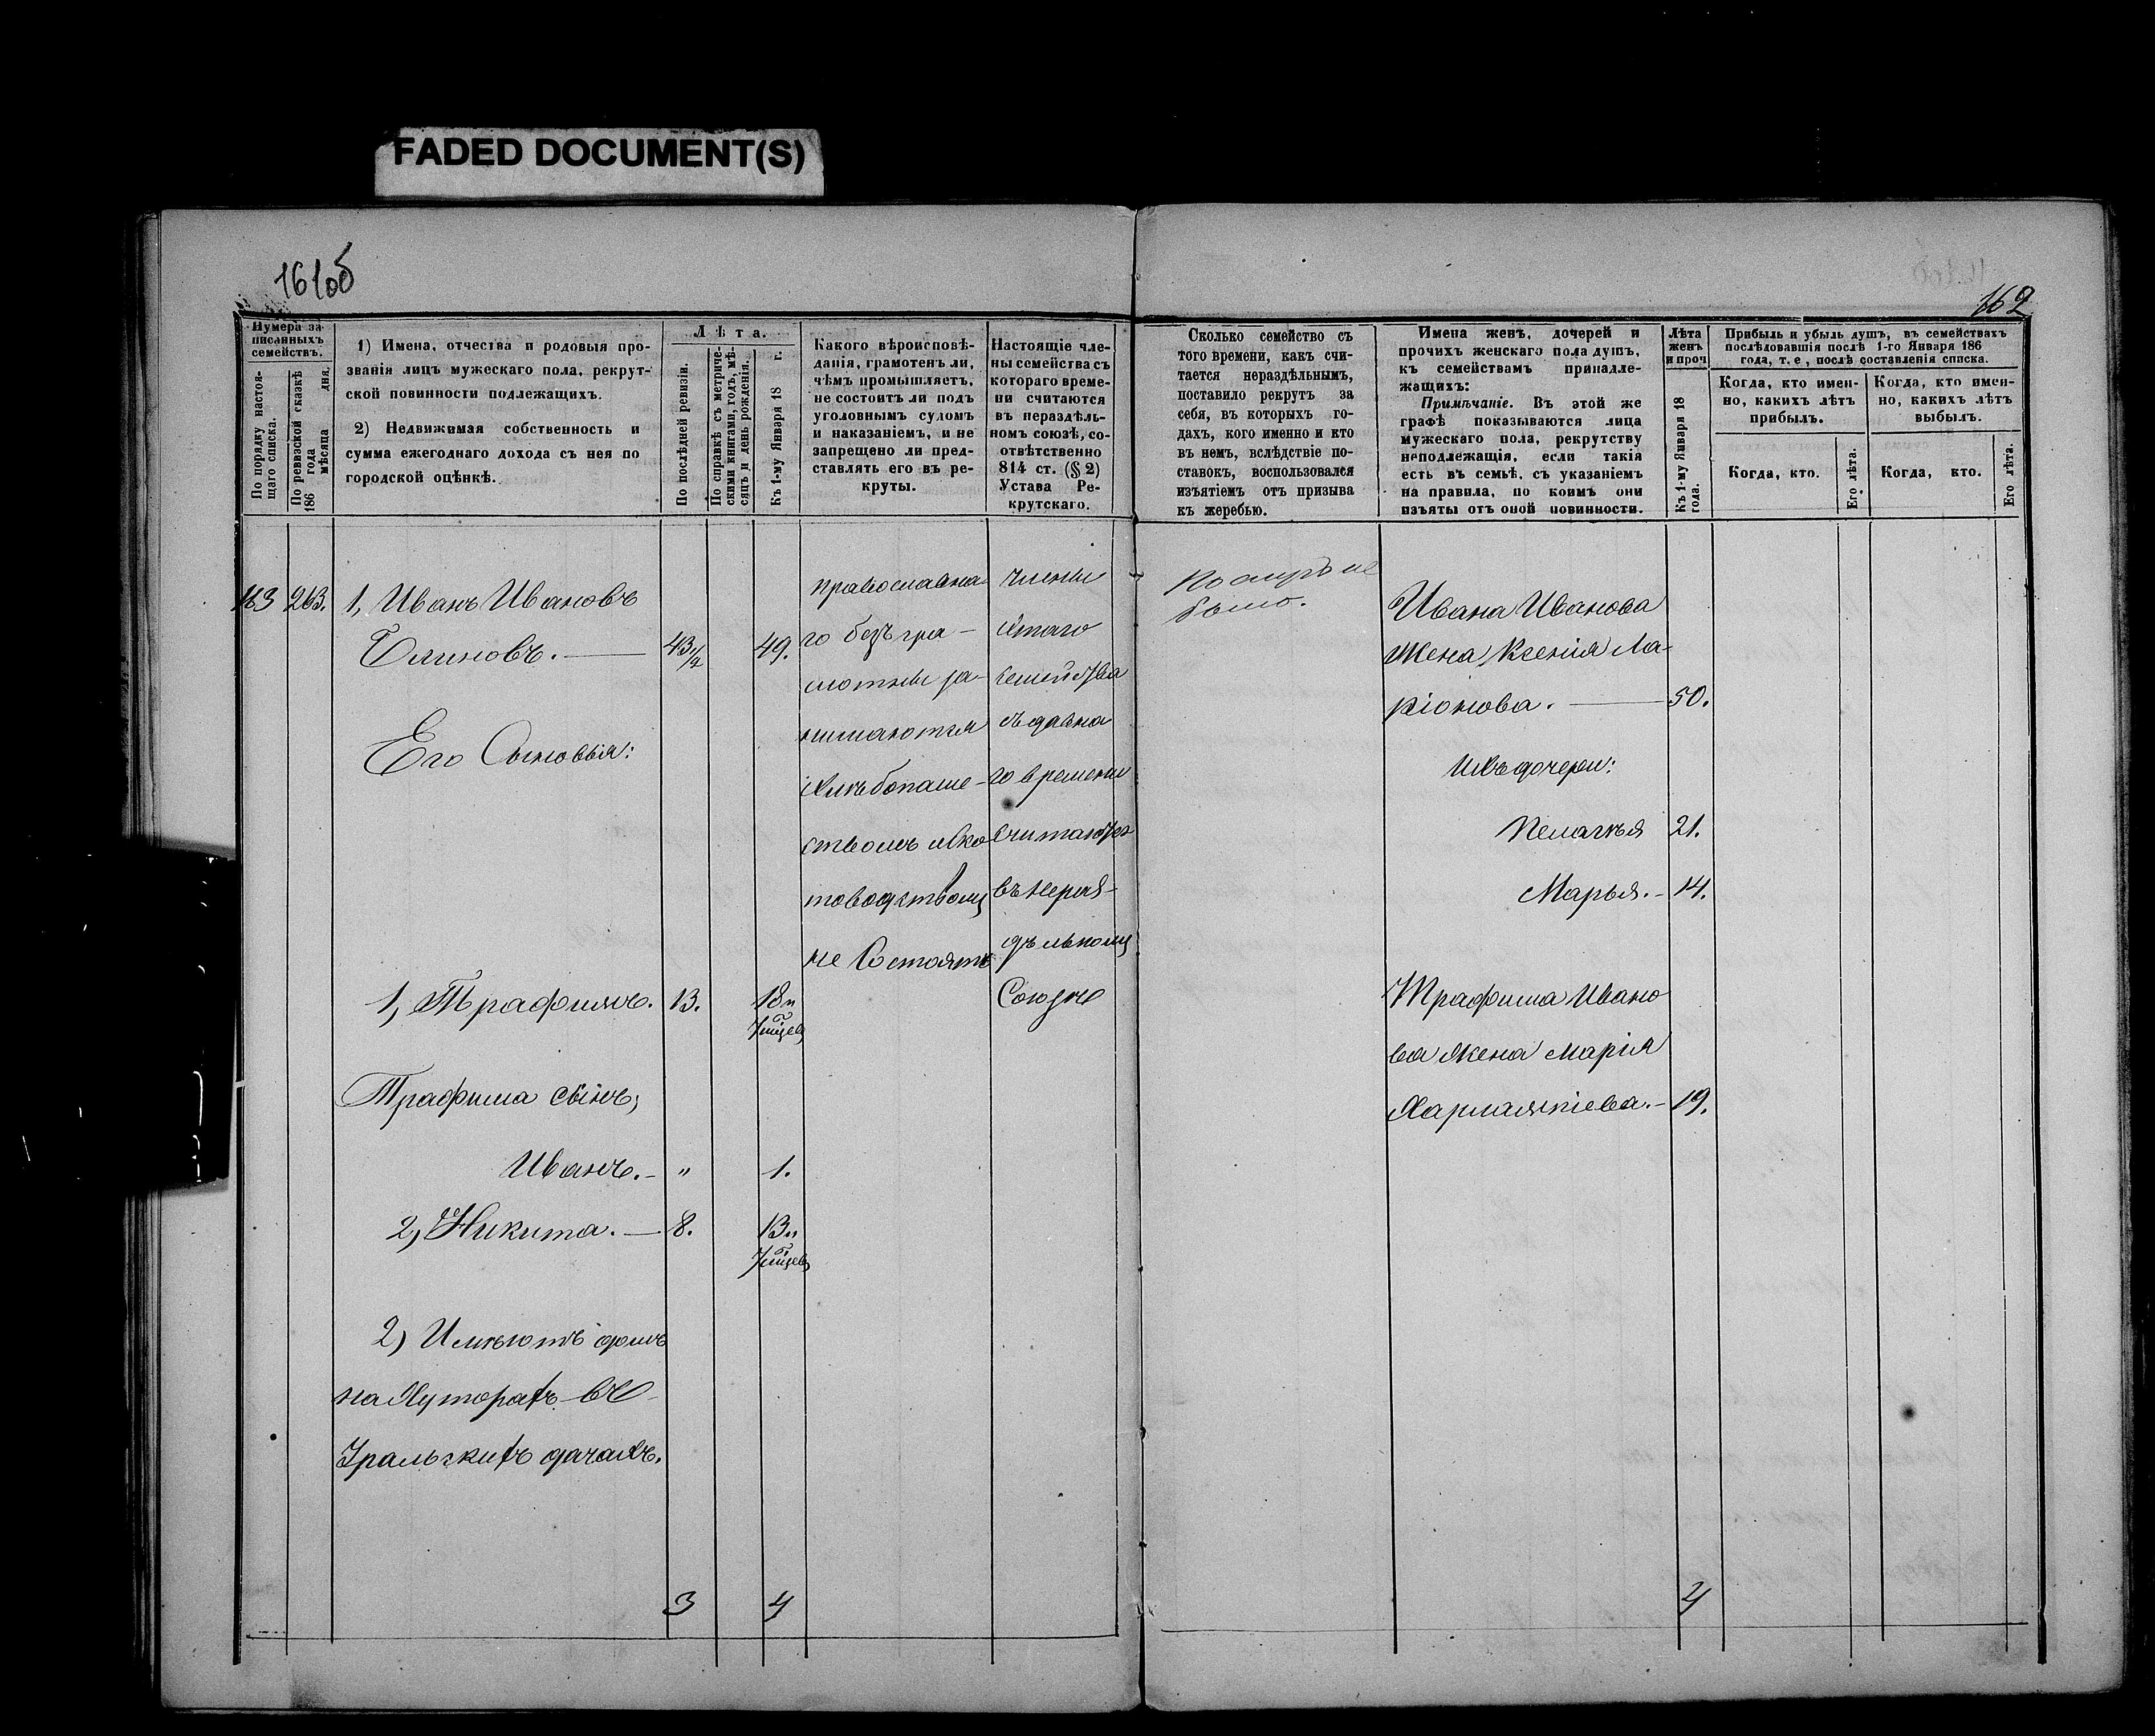 FADED DOCUMENT(S)
161об
162
Нумера за-
писанныхъ
семействъ.
По порядку настоя-
щаго списка.
По ревизской сказкѣ
186 года
мѣсяца дня.
1) Имена, отчества и родовыя про-
званія лицъ мужескаго пола, рекрут-
ской повинности подлежащихъ.
2) Недвижимая собственность и
сумма ежегоднаго дохода съ нея по
городской оцѣнкѣ.
Лѣта.
По послѣдней ревизіи.
По справкѣ съ метриче-
скими книгами, годъ, мѣ-
сяцъ и день рожденія.
Къ 1-му Января 18 г.
Какого вѣроисповѣ-
данія, грамотенъ ли,
чѣмъ промышляетъ,
не состоитъ ли подъ
уголовнымъ судомъ
и наказаніемъ, и не
запрещено ли пред-
ставлять его въ ре-
круты.
Настоящіе чле-
ны семейства съ
котораго време-
ни считаются
въ нераздѣль-
номъ союзѣ, со-
отвѣтственно
814 ст. (§ 2)
Устава Ре-
крутскаго.
Сколько семейство съ
того времени, какъ счи-
тается нераздѣльнымъ,
поставило рекрутъ за
себя, въ которыхъ го-
дахъ, кого именно и кто
въ немъ, вслѣдствіе по-
ставокъ, воспользовался
изъятіемъ отъ призыва
къ жеребью.
Имена женъ, дочерей и
прочихъ женскаго пола душъ,
къ семействамъ принадле-
жащихъ:
Примѣчаніе. Въ этой же
графѣ показываются лица
мужескаго пола, рекрутству
неподлежащія, если такія
есть въ семьѣ, съ указаніемъ
на правила, по коимъ они
изъяты отъ оной повинности.
Лѣта
женъ
и проч
Къ 1-му Января 18
года.
Прибыль и убыль душъ, въ семействахъ
послѣдовавшія послѣ 1-го Января 186
года, т. е., послѣ составленія списка.
Когда, кто имен-
но, какихъ лѣтъ
прибылъ.
Когда, кто имен-
но, какихъ лѣтъ
выбылъ.
Когда, кто.
Его лѣта.
Когда, кто.
Его лѣта.
163 263. 1, Иванъ Ивановъ
Блиновъ. 43 1/2 49.
Его Сыновья:
1, Трафимъ. 13. 18 и
Трафима сынъ,
Иванъ. " 1.
2, Никита. 8. 13 и
2) Имѣютъ домъ
на Хуторахъ въ
Уральскихъ дачахъ.
3 4
православна-
го безъ гра-
мотны за-
нимаются
хлѣбопаше-
ствомъ и ско
товодствомъ
не Состоятъ
члены
этаго
семейства
съ давна
го времени
считаются
въ нераз-
дѣльномъ
Союзѣ
не
было.
Ивана Иванова
Жена Ксенія Ла-
ріонова. 50.
Ихъ дочери:
Пелагѣя 21.
Марья. 14.
Трафима Ивано
ва Жена Марія
Харлампіева. 19.
4